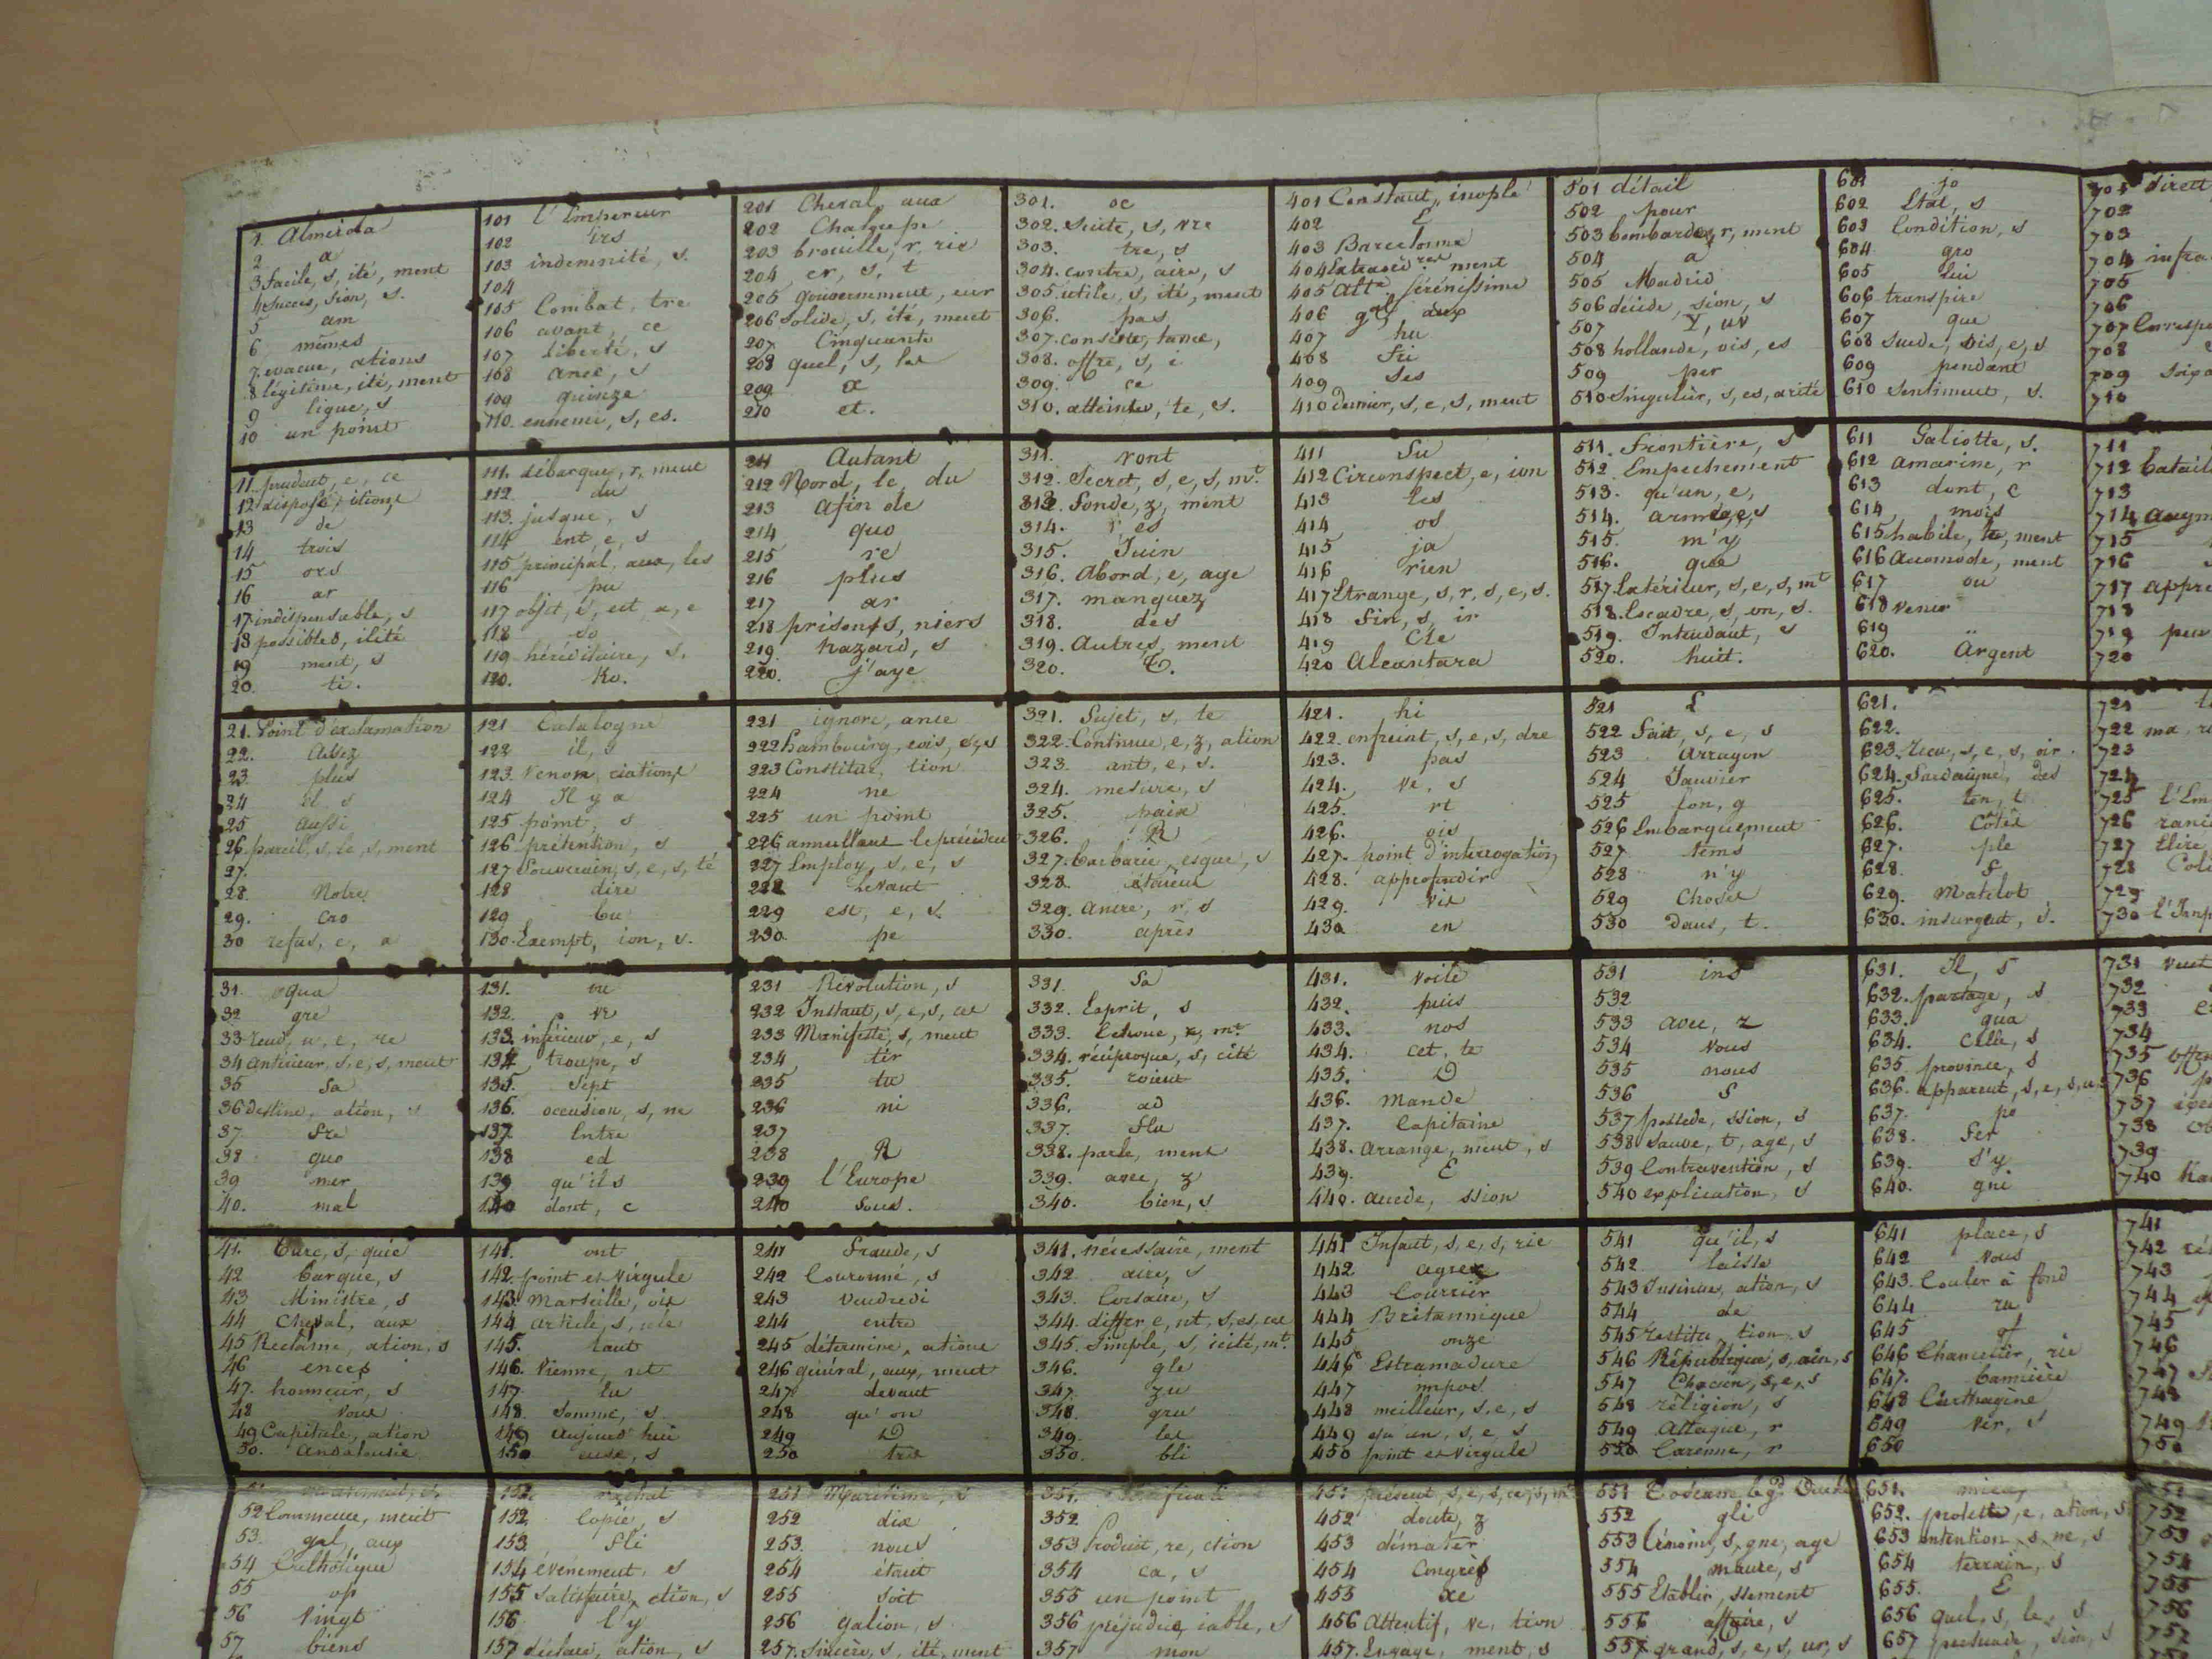 1. Almeida
2 a
3 facile, s, ité, ment
4 Succes, sion, s.
5 am
6 mêmes
7. evacue, ations
8 légitime, ité, ment
9 ligue, s
10 un point
11. prudent, e, ce
12 dispose, ition,
13 de
14 trois
15 ors
16 ar
17 indispensable, s
18 possibles, ilité
19 ment, s
20. ti.
21. Point d'exclamation
22. Assez
23. plus
24 el, s
25 aussi
26. pareil, s, le, s, ment
27.
28. Notre
29. cao
30 refus, e, a
31. qua
32 gre
33 rend, u, e, re
34 antérieur, s, e, s, ment
35 Sa
36 destine, ation, s
37. fre
38 quo
39 mer
40. mal
41. Turc, s, quie
42 barque, s
43 Ministre, s
44 cheval, aux
45 Reclame, ation, s
46 ences
47. honneur, s
48 vous
49 Capitale, ation
50. Andalousie
52 Commence, ment
53. gal, aux
54 Catholique
55 op
56 Vingt
57 biens
101 l'Empereur
102 irs
103 indemnité, s.
104
105 Combat, tre
106 avant, ce
107 liberté, s
108 ance, s
109 quinze
110. ennemi, s, es.
111. débarque, r, ment
112. du
113. jusque, s
114 ent, e, s
115 principal, aux, les
116 pu
117 objet, s, ect, a, e
118 do
119 héréditaire, s.
120. ko.
121 Catalogne
122 il, s
123. Renonciation,
124 Il y a
125 point, s
126 prétention, s
127 Souverain, s, e, s, té
128 dire
129 bu
130. Exempt, ion, s.
131. ou
132. vr
133. inférieur, e, s
134. troupe, s
135. Sept
136. occasion, s, ne
137. Entre
138 ed
139 qu'ils
140 dont, c
141. ont
142. point et virgule
143. Marseille, ois
144 article, s, ulé
145. tant
146. Vienne, nt
147. lu
148. Somme, s
149 aujourd'hui
150. euse, s
151. rachat
152. Copie, s
153. fli
154 évènement, s
155 Satisfaire, ction, s
156 l'y
157 déclare, ation, s
201 Cheval, aux
202 Chaloupe
203 brouille, r, rie
204 er, s, t
205 gouvernement, eur
206 solide, s, ité, ment
207. Cinquante
208 quel, s, les
209. x
210 et.
211 Autant
212 Nord, le, du
213 afin de
214 quo
215 re
216 plus
217 ar
218 prison, s, niers
219. hazard, s
220. j'aye
221 ignore, ance
222 hambourg, eois, es
223 Constitue, tion
224 ne
225 un point
226 annullant le précédent
227 Employ, s, e, s
228 Levant
229 est, e, s.
230. pe
231 Révolution, s
232 Instant, s, e, s, ce
233 Manifeste, s, ment
234 tir
235 tu
236 ni
237
238 R
239 l'Europe
240 Sous.
241 fraude, s
242 Couronné, s
243 Vendredi
244 entre
245 détermine, ations
246 général, aux, ment
247 devant
248 qu'on
249 D
250 tra
251 Maritime, s
252 dix
253. nous
254 était
255 soit
256 galion, s
257. Sincère, s, ité, ment
301. oc
302. Suite, s, vre
303. tre, s
304. contre, aire, s
305. utile, s, ité, ment
306. pas
307. consiste, tance,
308. offre, s, i
309. ce
310. atteinte, te, s.
311. vont
312. Secret, s, e, s, mt.
313. fonde, z, ment
314. es
315. Juin
316. Abord, e, age
317. manquez
318. des
319. Autres, ment
320. T.
321. Sujet, s, te
322. Continue, e, z, ation
323. ant, e, s.
324. mesure, s
325. paix
326. R
327. barbarie, esque, s
328. étoient
329. ancre, r, s
330. après
331. Sa
332. Esprit, s
333. Echoue, r, mt.
334. réciproque, s, cité
335. roient
336. ad
337. flu
338. parle, ment
339. avec, z
340. bien, s
341. nécessaire, ment
342. aire, s
343. Corsaire, s
344. differ, e, nt, s, es, ce
345. Simple, s, icité, mt.
346. gle
347. zu
348. gru
349. les
350. bli
351.
352
353 Produit, re, ction
354 ca, s
355 un point
356 préjudice, iable, s
357 mon
401 Constant, inople
402 E
403 Barcelonne
404 Extraordre. ment
405 alte Sérénissime
406 gal, aux
407 hu
408 fri
409 Ses
410 dernier, s, e, s, ment
411 Su
412 Circonspect, e, ion
413 les
414 os
415 ja
416 rien
417 Etrange, s, r, s, e, s.
418 fin, s, ir
419 Cle
420 Alcantara
421. hi
422. enfreint, s, e, s, dre
423. pas
424. ve, s
425. rt
426. ois
427. point d'interrogation
428. approfondir
429. vis
430 en
431. voile
432. puis
433. nos
434. cet, te
435. D
436. Mande
437. Capitaine
438. arrange, ment, s
439. E
440. accede, ssion
441 Infant, s, e, s, rie
442. agrée
443 Courrier
444 Britannique
445 onze
446 Estramadure
447 impos
448 meilleur, s, e, s
449 qu'un, s, e, s
450 point et virgule
451 présent, s, e, s, ce, s, mt
452 doute, z
453 démâter
454 Congrès
455 xe
456 Attentif, ve, tion
457. Engage, ment, s
501 détail
502 pour
503 bombarde, r, ment
504 a
505 Madrid
506 décide, sion, s
507 Y, uv
508 hollande, ois, es
509 per
510 Singulier, s, es, arité
511. frontière, s
512 Empechement
513. qu'un, e,
514. armée, s
515. m'y
516. que
517 Extérieur, s, e, s, mt
518. Escadre, s, on, s.
519. Intendant, s
520. huit.
521 L
522 Fait, s, e, s
523 Arragon
524 Janvier
525 fon, g
526 Embarquement
527 tems
528 n'y
529 Choses
530 Dans, t.
531 ins
532
533 avec, z
534 vous
535 nous
536 S
537 possede, ssion, s
538 sauve, t, age, s
539 Contravention, s
540 explication, s
541 qu'il, s
542 laisse
543 Insinue, ation, s
544 de
545 restitu, tion, s
546 République, s, ain, s
547 Chacun, s, e, s
548 réligion, s
549 Attaque, r
550 Carenne, r
551 Toscane le gd Duché
552 gli
553 témoin, s, gne, age
554 maure, s
555 Etablir, ssement
556 affaire, s
557 grand, s, e, s, ur, s
601 jo
602 Etat, s
603 Condition, s
604 gro
605 lui
606 transpire
607 que
608 Suede, ois, e, s
609 pendant
610 Sentiment, s.
611 Galiotte, s.
612 amarine, r
613 dont, c
614 mois
615 habile, te, ment
616 Accomode, ment
617 ou
618 venir
619 ..
620. Argent
621.
622.
623. Recu, s, e, s, oir.
624. Sardaigne, des
625. ten, t
626. Côtés
627. ple
628. f
629. Matelot
630. insurgent, s.
631. Il, s
632. partage, s
633. qua
634. Celle, s
635. province, s
636. apparent, s, e, s, ce
637. po
638. fer
639. s'y
640. gni
641 place, s
642 vous
643. Couler à fond
644 ru
645 of
646 Chancelier, rie
647. bannière
648 Carthagène
649 ver, s
650
651. mieux
652. protette, e, ation, s
653 intention, s, ne, s
654 terrain, s
655. E
656 quel, s, le, s
657 persuade, sion, s
701 direct
702
703
704 infra
705
706
707 Corresp
708
709
710
711
712 batail
713
714 augm
715
716
717 appre
718
719 peu
720
721
722 ma, r
723
724
725 l'Em
726
727 Elire
728
729
730 l'Imp
731
732
733
734
735 offr
736
737
738
739
740
741
742
743
744
745
746
747
748
749
750
751
752
753
754
755
756
757